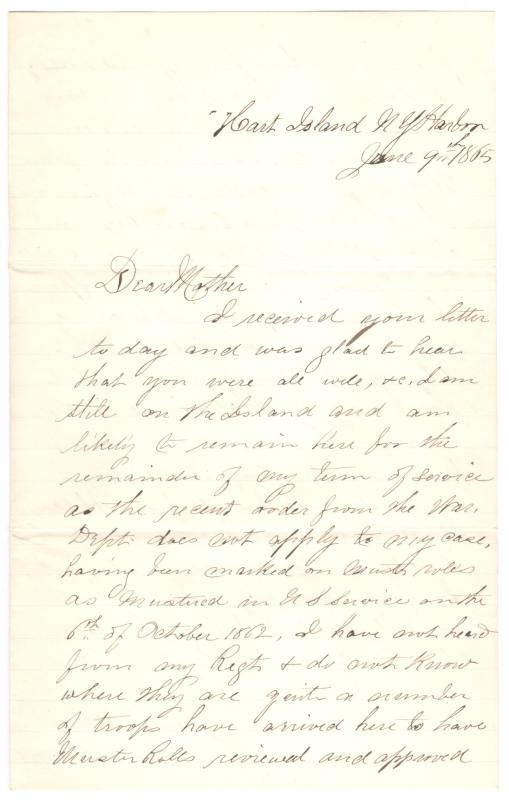 Hart Island N Y Harbor
June 9th 1865
Dear Mother
I received your letter
to day and was glad to hear
that you were all well, &c, I am
still on the Island and am
likely to remain here for the
remainder of my term of service
as the recent order from the War.
Dept. does not apply to my case,
having been marked on Muster roles
as Mustured in U S Service on the
6th of October 1862, I have not heard
from my Regt & do not know
where they are quite a number
of troops have arrived here to have
Muster Rolls reviewed and approved